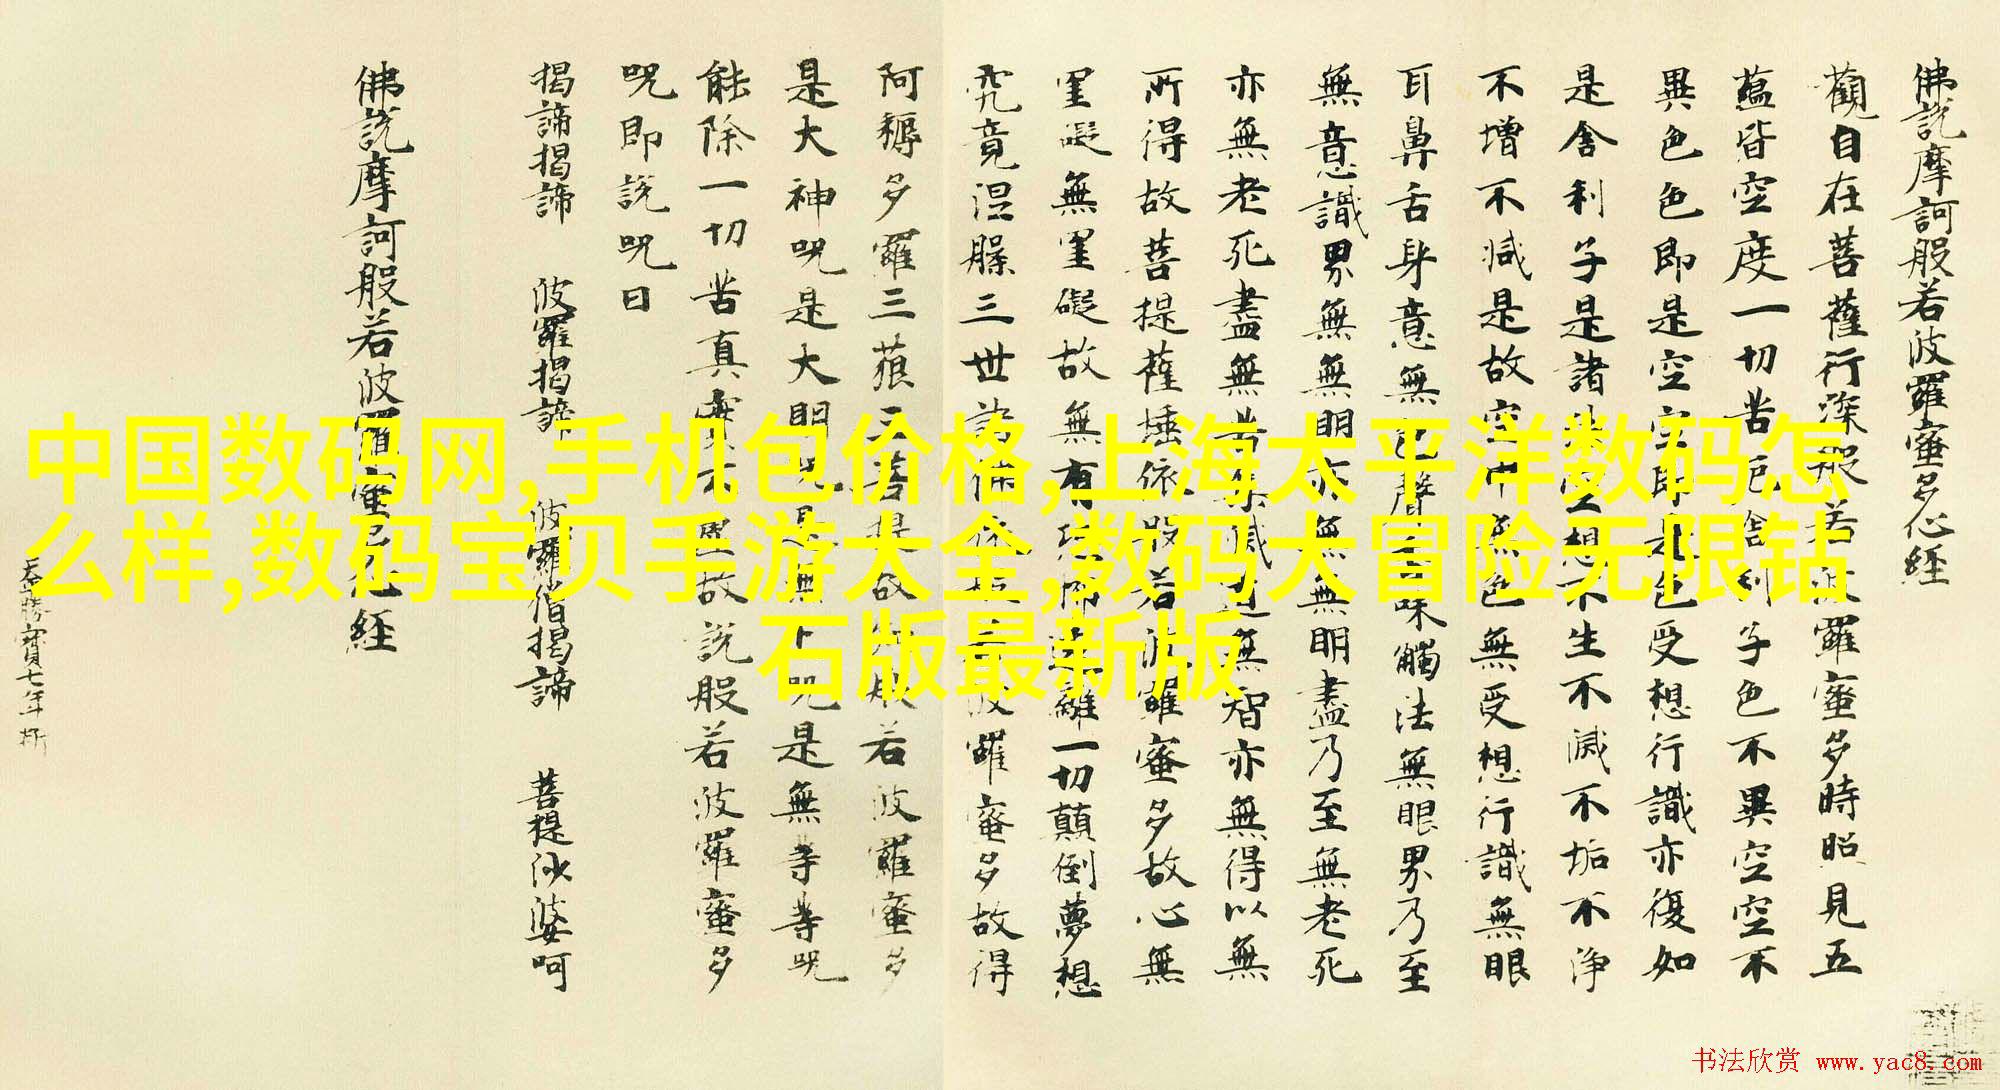 佛說摩訶般若波羅蜜多心経
觀自在菩薩行深般若波羅蜜多時照見五
蘊皆空度一切苦厄舍利子色不異空空不
異色色即是空空即是色受想行識亦復如
是舍利子是諸法空想不生不滅不垢不淨
不增不減是故空中無色無受想行識無眼
耳鼻舌身意無色聲香味觸法無眼界乃至
無意識界無無明亦無無明盡乃至無老死
亦無老死盡無苦集滅道無智亦無得以無
所得故菩提薩埵依般若波羅蜜多故心無
罣礙無罣礙故無有恐怖遠離一切顛倒夢想
究竟涅槃三世諸佛依般若波羅蜜多故得
阿耨多羅三藐三菩提故知般若波羅蜜多
是大神呪是大明呪是無上呪是無等等呪
能除一切苦真實不虛故說般若波羅蜜多
呪即說呪曰
揭諦揭諦 波羅揭諦 波羅僧揭諦 菩提沙婆呵
佛說摩訶般若波羅蜜多心経
勝寶七年
中国数码网,手机包价格,上海太平洋数码怎
么样,数码宝贝手游大全,数码大冒险无限钻
石版最新版
书法欣赏 www.yac8.com